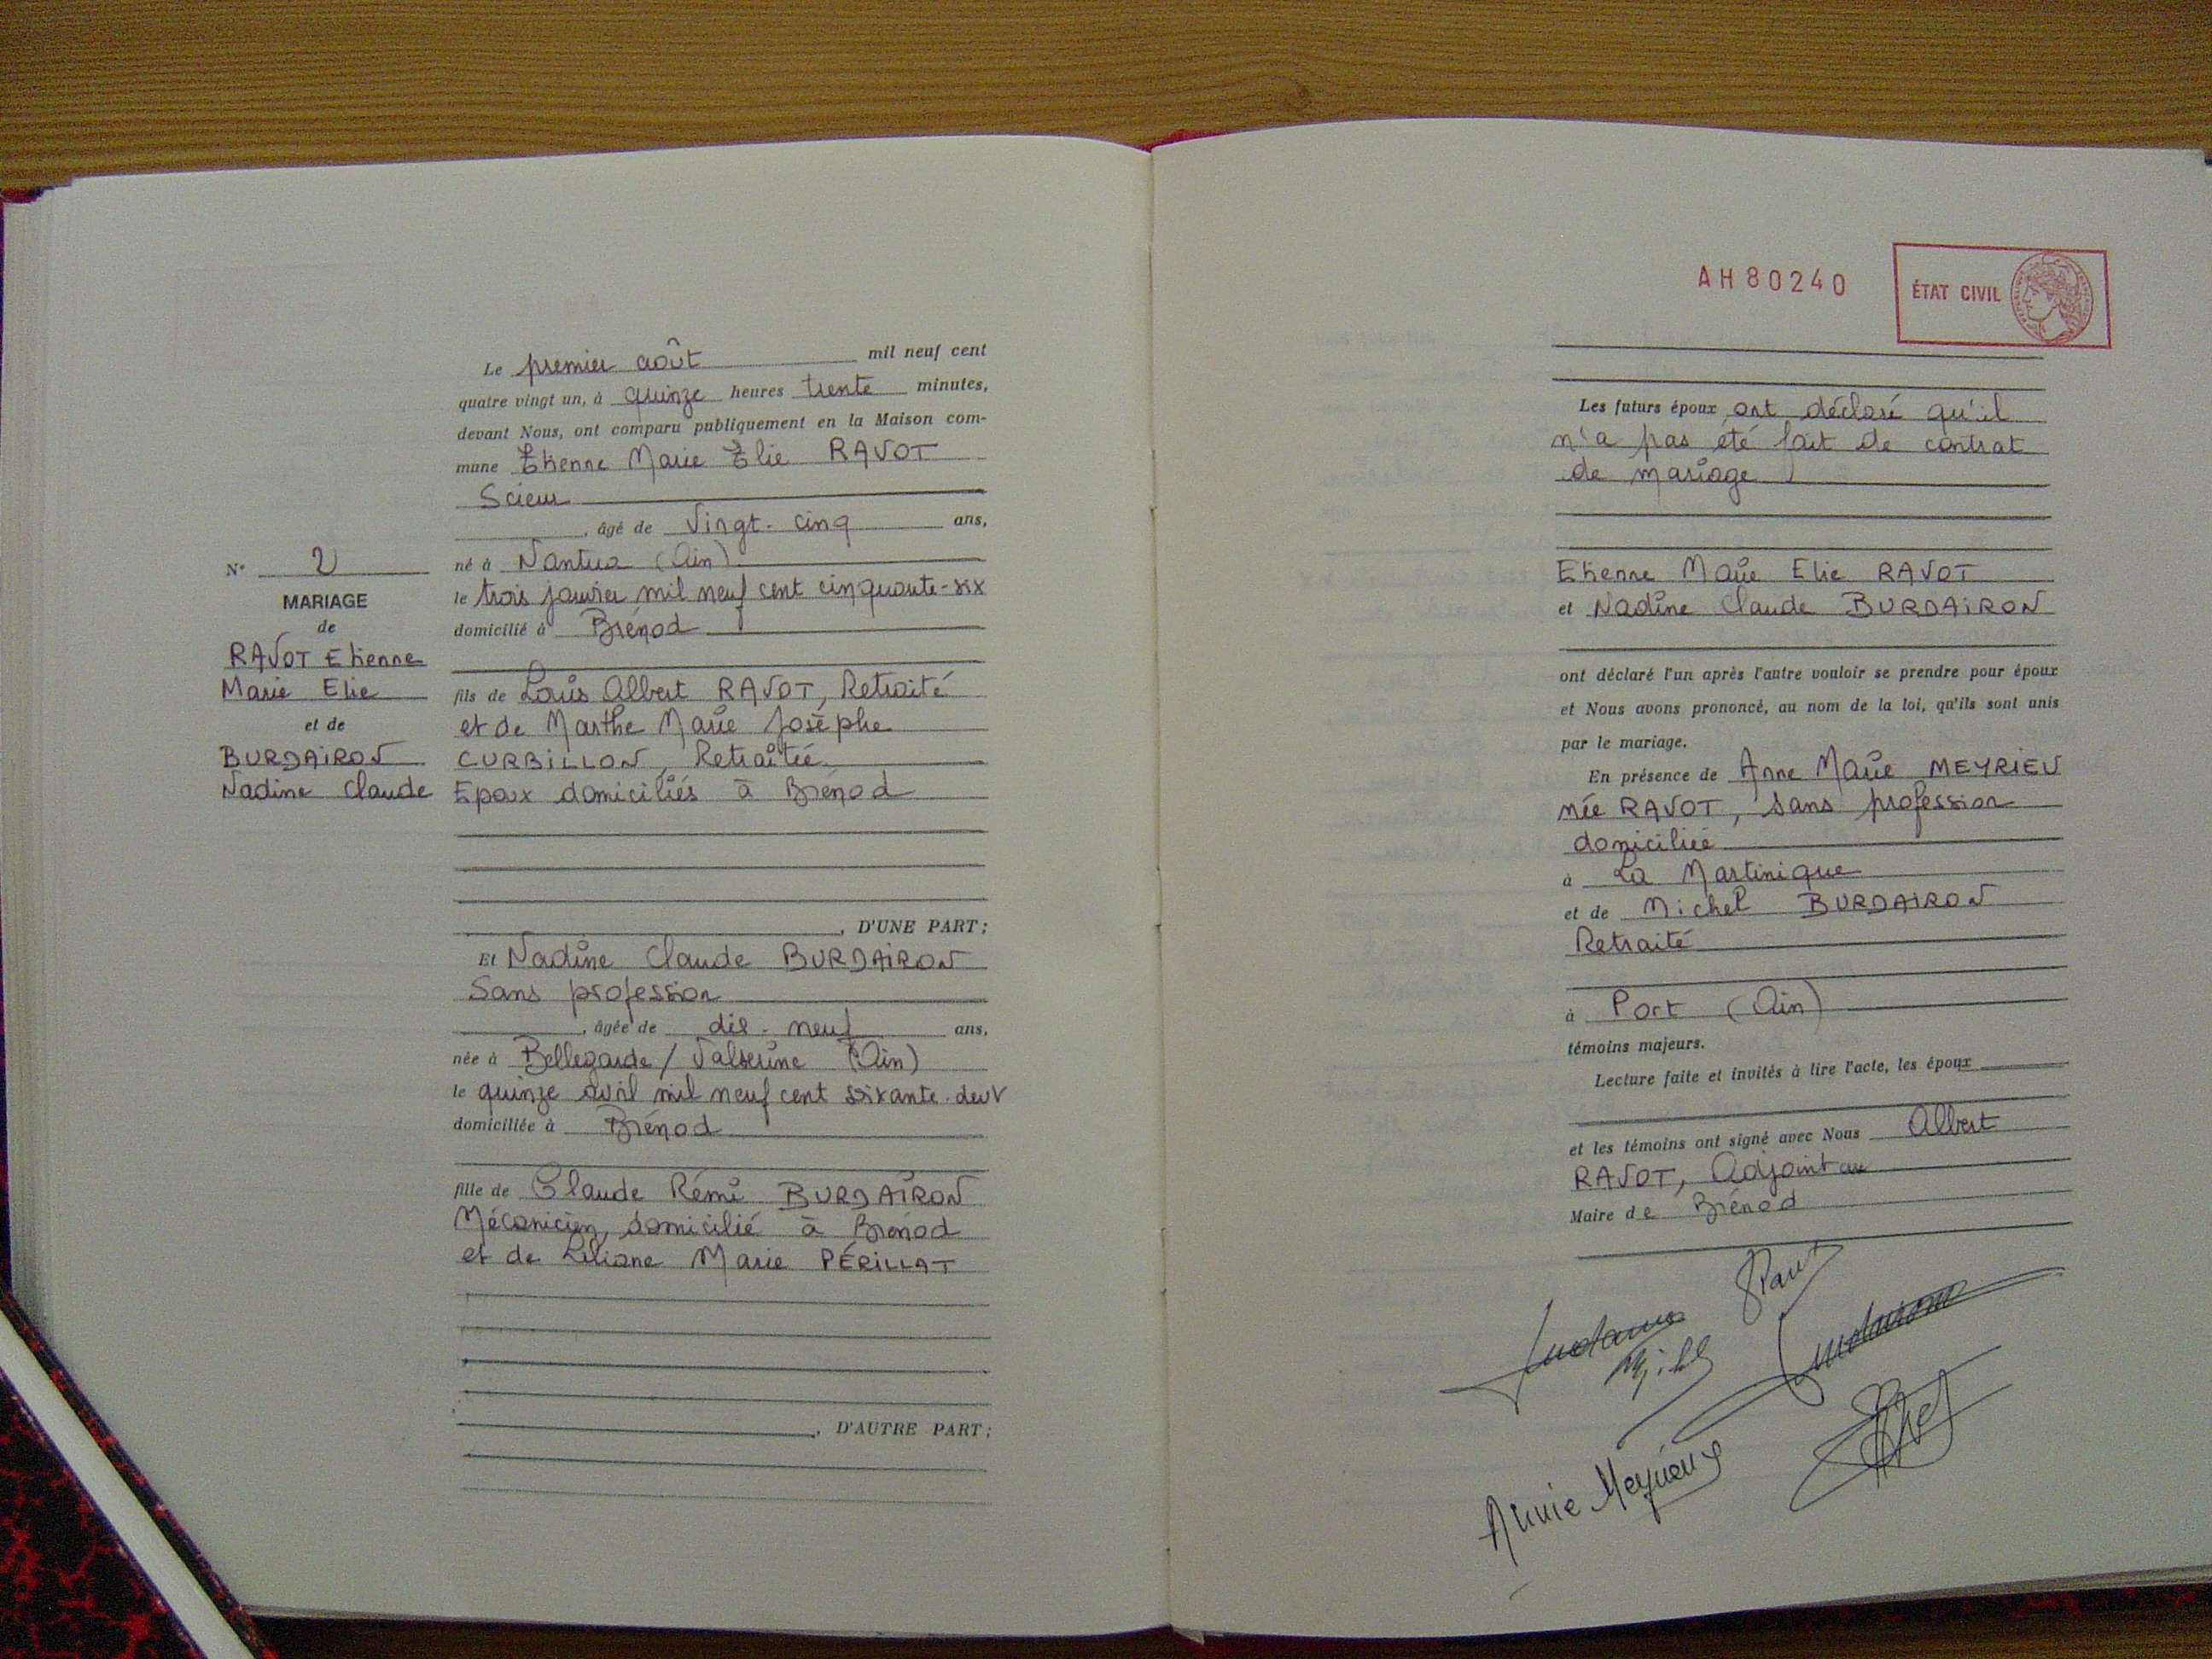 N° 2
MARIAGE
de
RAVOT Etienne
Marie Elie
et de
BURDAIRON
Nadine Claude
Le premier août mil neuf cent
quatre vingt un, à quinze heures trente minutes,
devant Nous, ont comparu publiquement en la Maison com-
mune Etienne Marie Elie RAVOT
Scieur
, âgé de Vingt-cinq ans,
né à Nantua (Ain)
le trois janvier mil neuf cent cinquante-six
domicilié à Brénod
fils de Louis Albert RAVOT, Retraité
et de Marthe Marie Josèphe
CURBILLON, Retraitée
Epoux domiciliés à Brénod
, D'UNE PART;
Et Nadine Claude BURDAIRON
Sans profession
, âgée de dix-neuf ans,
née à Bellegarde / Valserine (Ain)
le quinze avril mil neuf cent soixante-deux
domiciliée à Brénod
fille de Claude Rémi BURDAIRON
Mécanicien, domicilié à Brénod
et de Liliane Marie PÉRILLAT
, D'AUTRE PART;
AH80240
ÉTAT CIVIL
Les futurs époux ont déclaré qu'il
n'a pas été fait de contrat
de mariage
Etienne Marie Elie RAVOT
et Nadine Claude BURDAIRON
ont déclaré l'un après l'autre vouloir se prendre pour époux
et Nous avons prononcé, au nom de la loi, qu'ils sont unis
par le mariage.
En présence de Anne Marie MEYRIEU
née RAVOT, sans profession
domiciliée
à La Martinique
et de Michel BURDAIRON
Retraité
à Port (Ain)
témoins majeurs.
Lecture faite et invités à lire l'acte, les époux
et les témoins ont signé avec Nous Albert
RAVOT, Adjoint au
Maire de Brénod
Annie Meyrieux